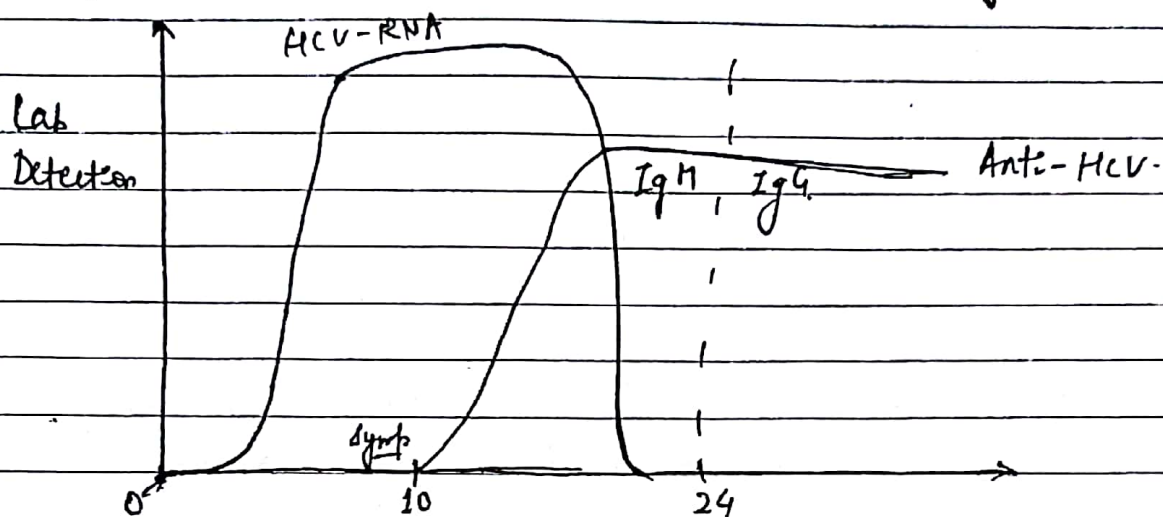 HCV-RNA
Lab
Detection
IgM IgG
Anti-HCV.
Symp
0 10 24